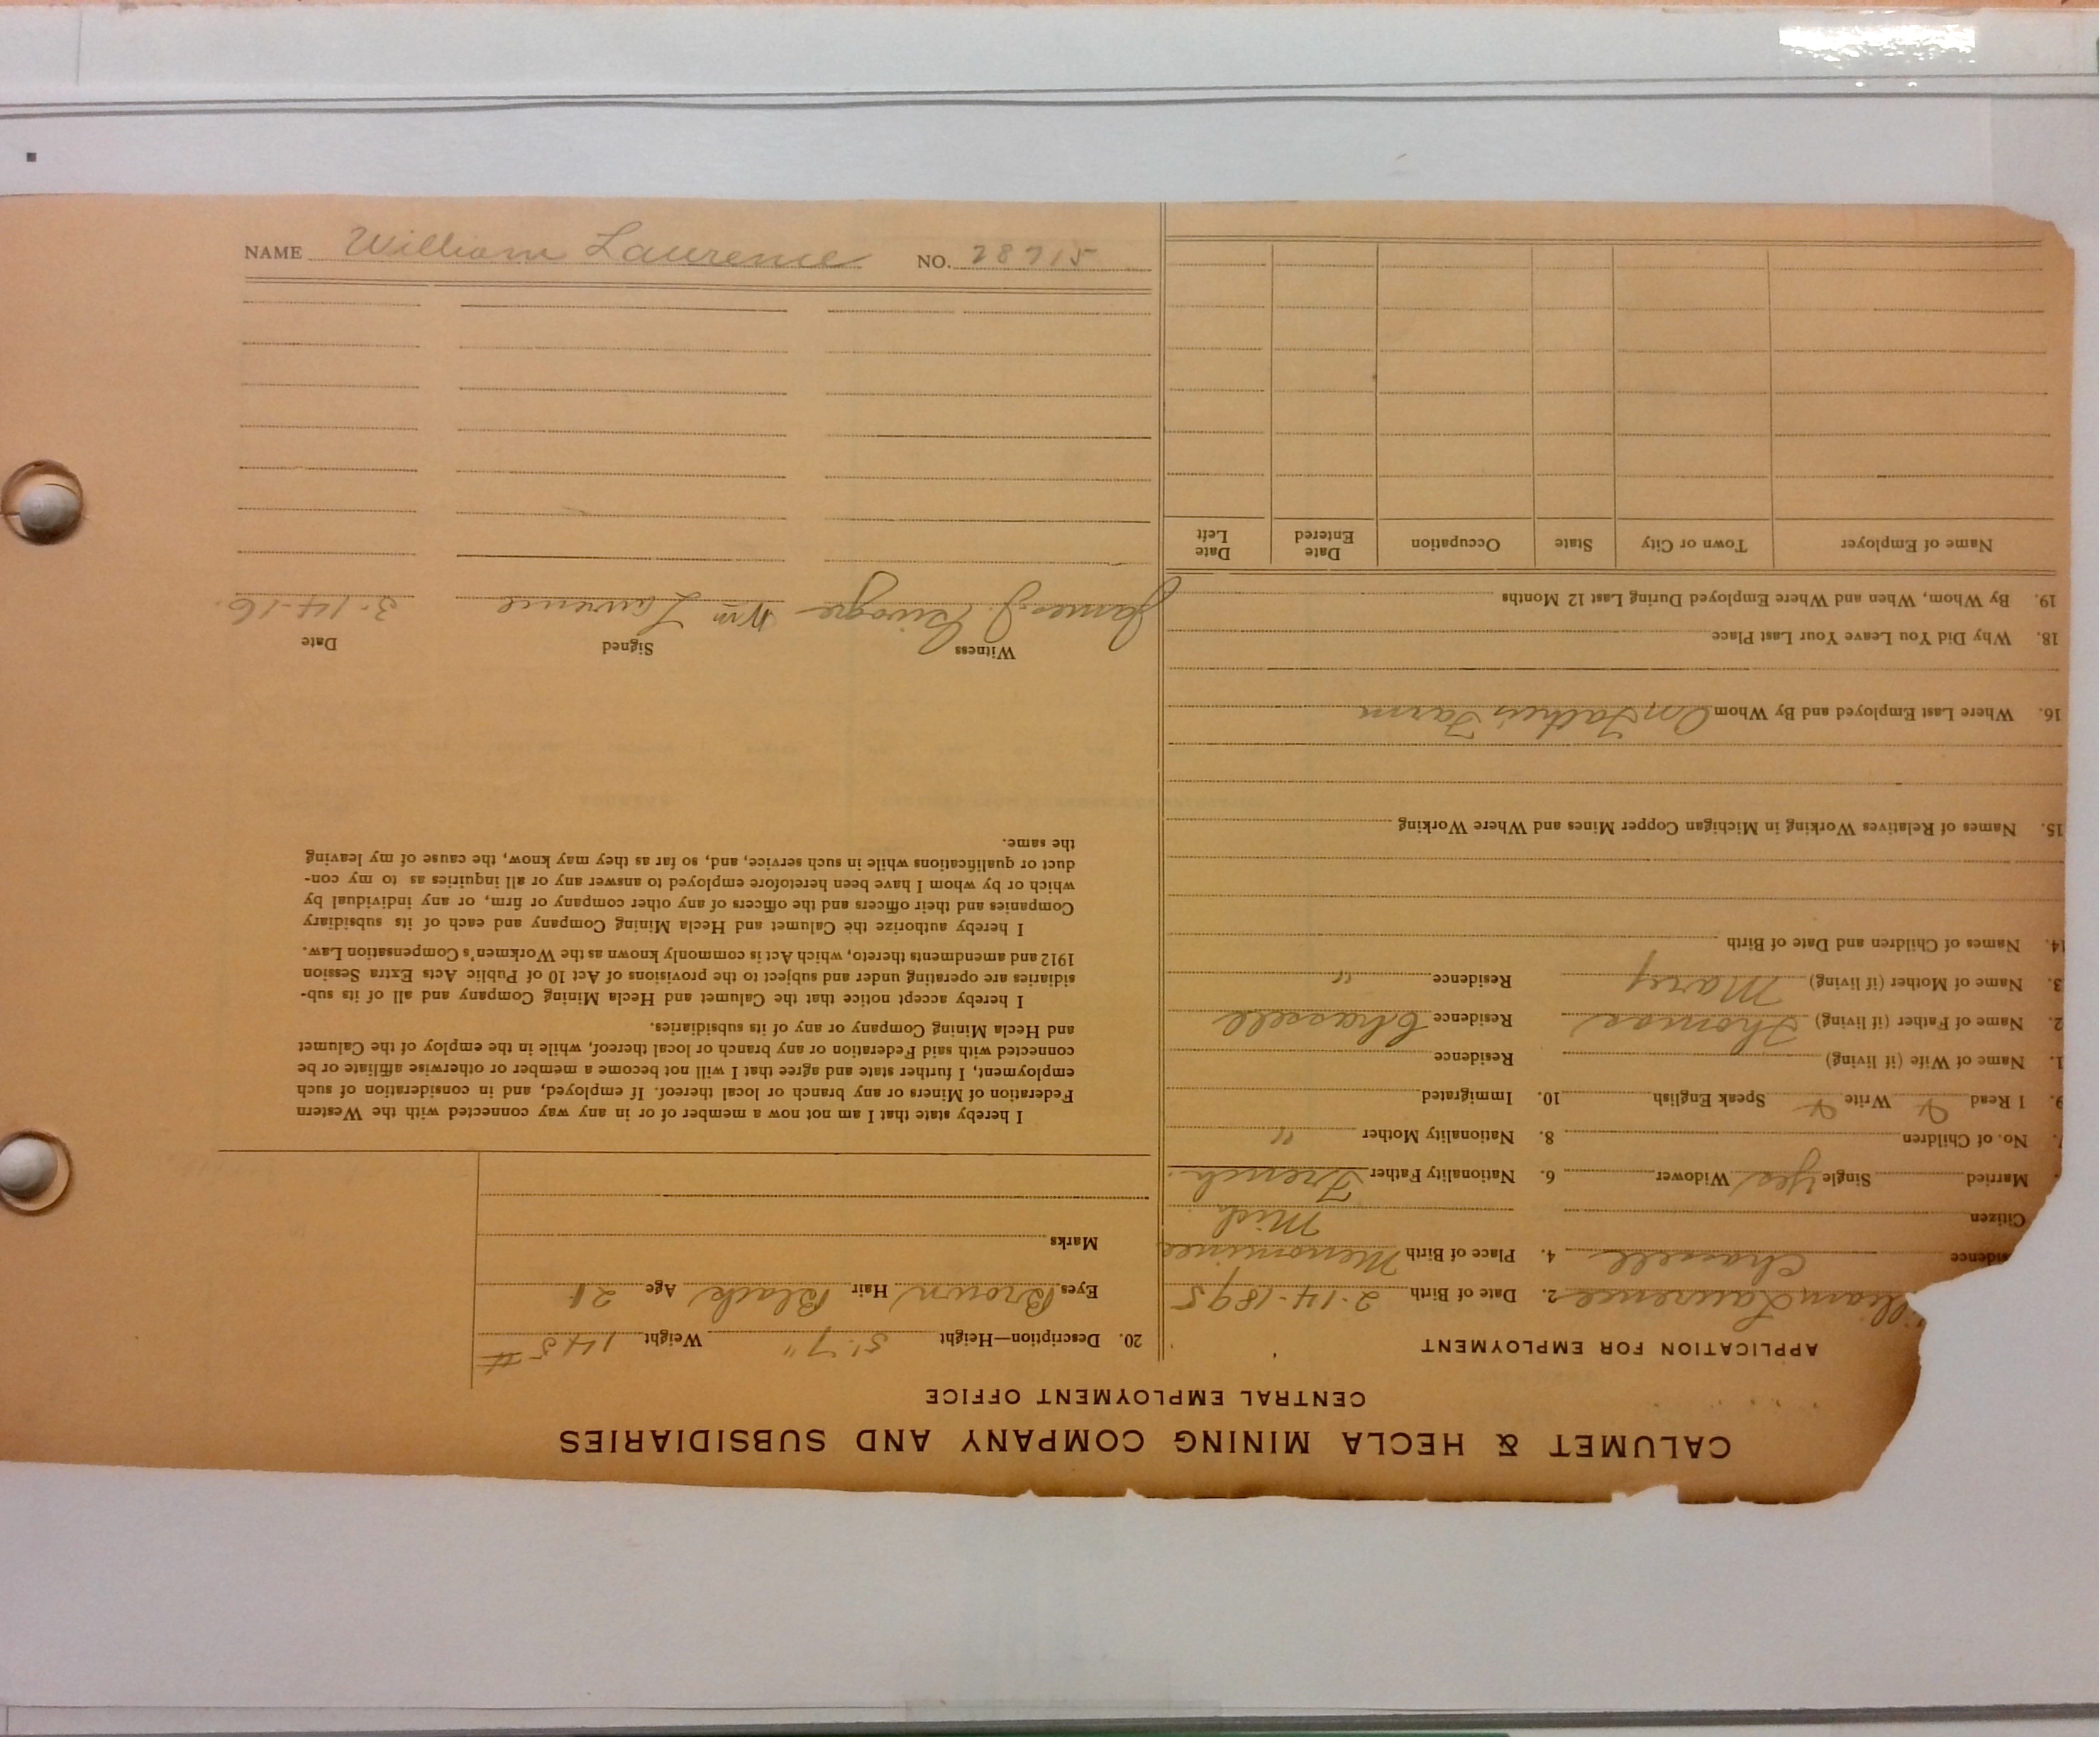 NAME William Laurence NO. 28715
CALUMET & HECLA MINING COMPANY AND SUBSIDIARIES
CENTRAL EMPLOYMENT OFFICE
APPLICATION FOR EMPLOYMENT
illiam Laurence 2. Date of Birth 2-14-1895
sidence Chassell 4. Place of Birth Menominee
Mich
Citizen
Married Single Yes Widower 6. Nationality Father French
7. No. of Children 8. Nationality Mother "
9. I Read Write Speak English 10. Immigrated
1. Name of Wife (if living) Residence
2. Name of Father (if living) Thomas Residence Chassell
3. Name of Mother (if living) Mary Residence "
14. Names of Children and Date of Birth
15. Names of Relatives Working in Michigan Copper Mines and Where Working
16. Where Last Employed and By Whom On Father's Farm
18. Why Did You Leave Your Last Place
19. By Whom, When and Where Employed During Last 12 Months
Name of Employer Town or City State Occupation Date Entered Date Left
20. Description—Height 5'-7" Weight 145 #
Eyes Brown Hair Black Age 21
Marks
I hereby state that I am not now a member of or in any way connected with the Western
Federation of Miners or any branch or local thereof. If employed, and in consideration of such
employment, I further state and agree that I will not become a member or otherwise affiliate or be
connected with said Federation or any branch or local thereof, while in the employ of the Calumet
and Hecla Mining Company or any of its subsidiaries.
I hereby accept notice that the Calumet and Hecla Mining Company and all of its sub-
sidiaries are operating under and subject to the provisions of Act 10 of Public Acts Extra Session
1912 and amendments thereto, which Act is commonly known as the Workmen's Compensation Law.
I hereby authorize the Calumet and Hecla Mining Company and each of its subsidiary
Companies and their officers and the officers of any other company or firm, or any individual by
which or by whom I have been heretofore employed to answer any or all inquiries as to my con-
duct or qualifications while in such service, and, so far as they may know, the cause of my leaving
the same.
Witness Signed Date
James J. Wm Laurence 3-14-16.